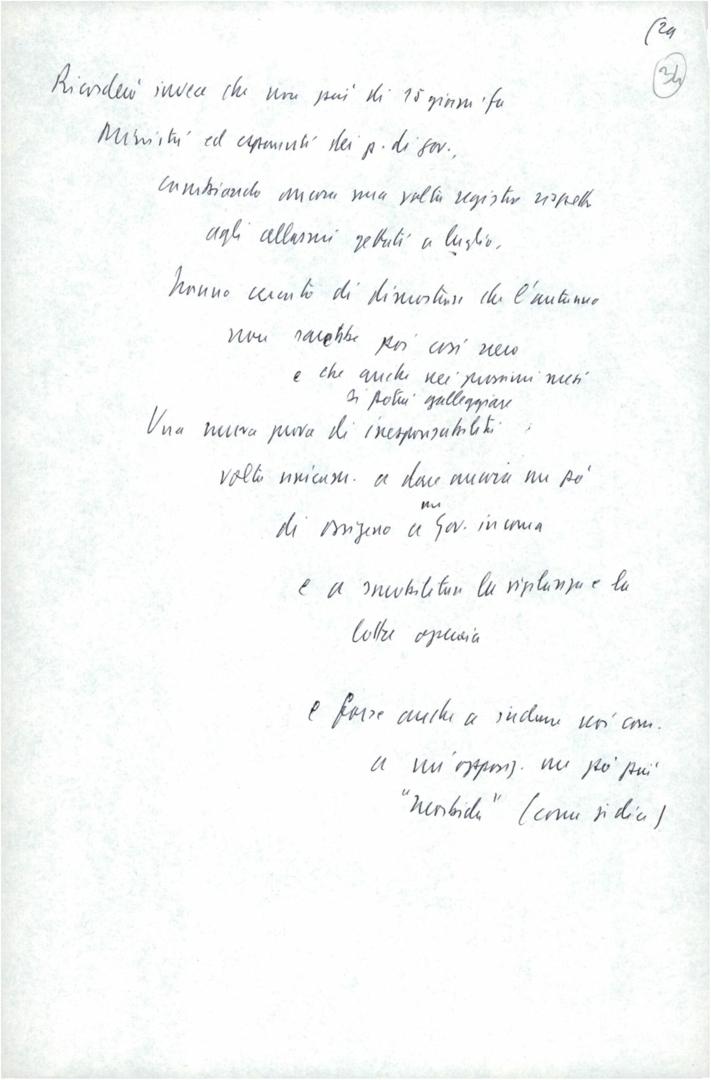 (29
34
Ricorderò invece che non più di 15 giorni fa
Ministri ed esponenti dei p. di gov.,
cambiando ancora una volta registro rispetto
agli allarmi gettati a luglio,
hanno cercato di dimostrare che l'autunno
non sarebbe poi così nero
e che anche nei prossimi mesi
si potrà galleggiare
Una nuova prova di irresponsabilità
volta unicam. a dare ancora un pò
di ossigeno a un Gov. in coma
e a smobilitare la vigilanza e la
lotta operaia
e forse anche a indurre noi com.
a un'opposiz. un pò più
"morbida" (come si dice)